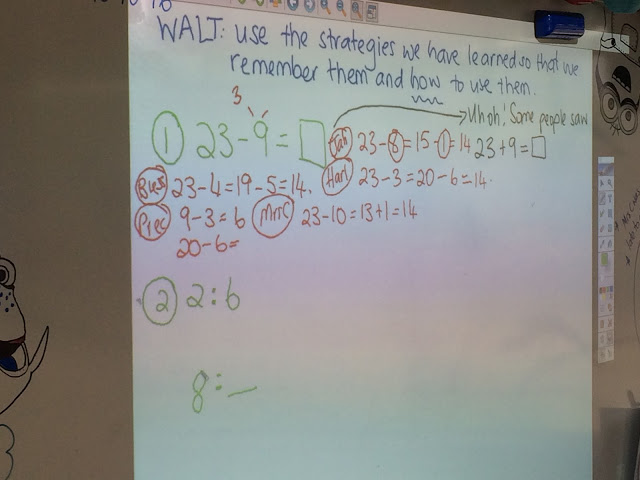 WALT: use the strategies we have learned so that we
remember them and how to use them.
3
Uh oh! Some people saw
① 23-9=□ 23-8=15-1=14 23+9=□
Bless 23-4=19-5=14. Harl 23-3=20-6=14.
Prec 9-3=6 MrrC 23-10=13+1=14
20-6=
② 2:6
8:_